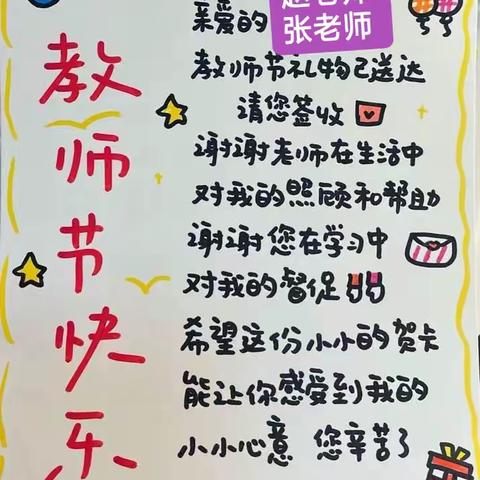 教师节快乐
亲爱的
赵老师
张老师
教师节礼物已送达
请您签收
谢谢老师在生活中
对我的照顾和帮助
谢谢您在学习中
对我的督促
希望这份小小的贺卡
能让你感受到我的
小小心意 您辛苦了